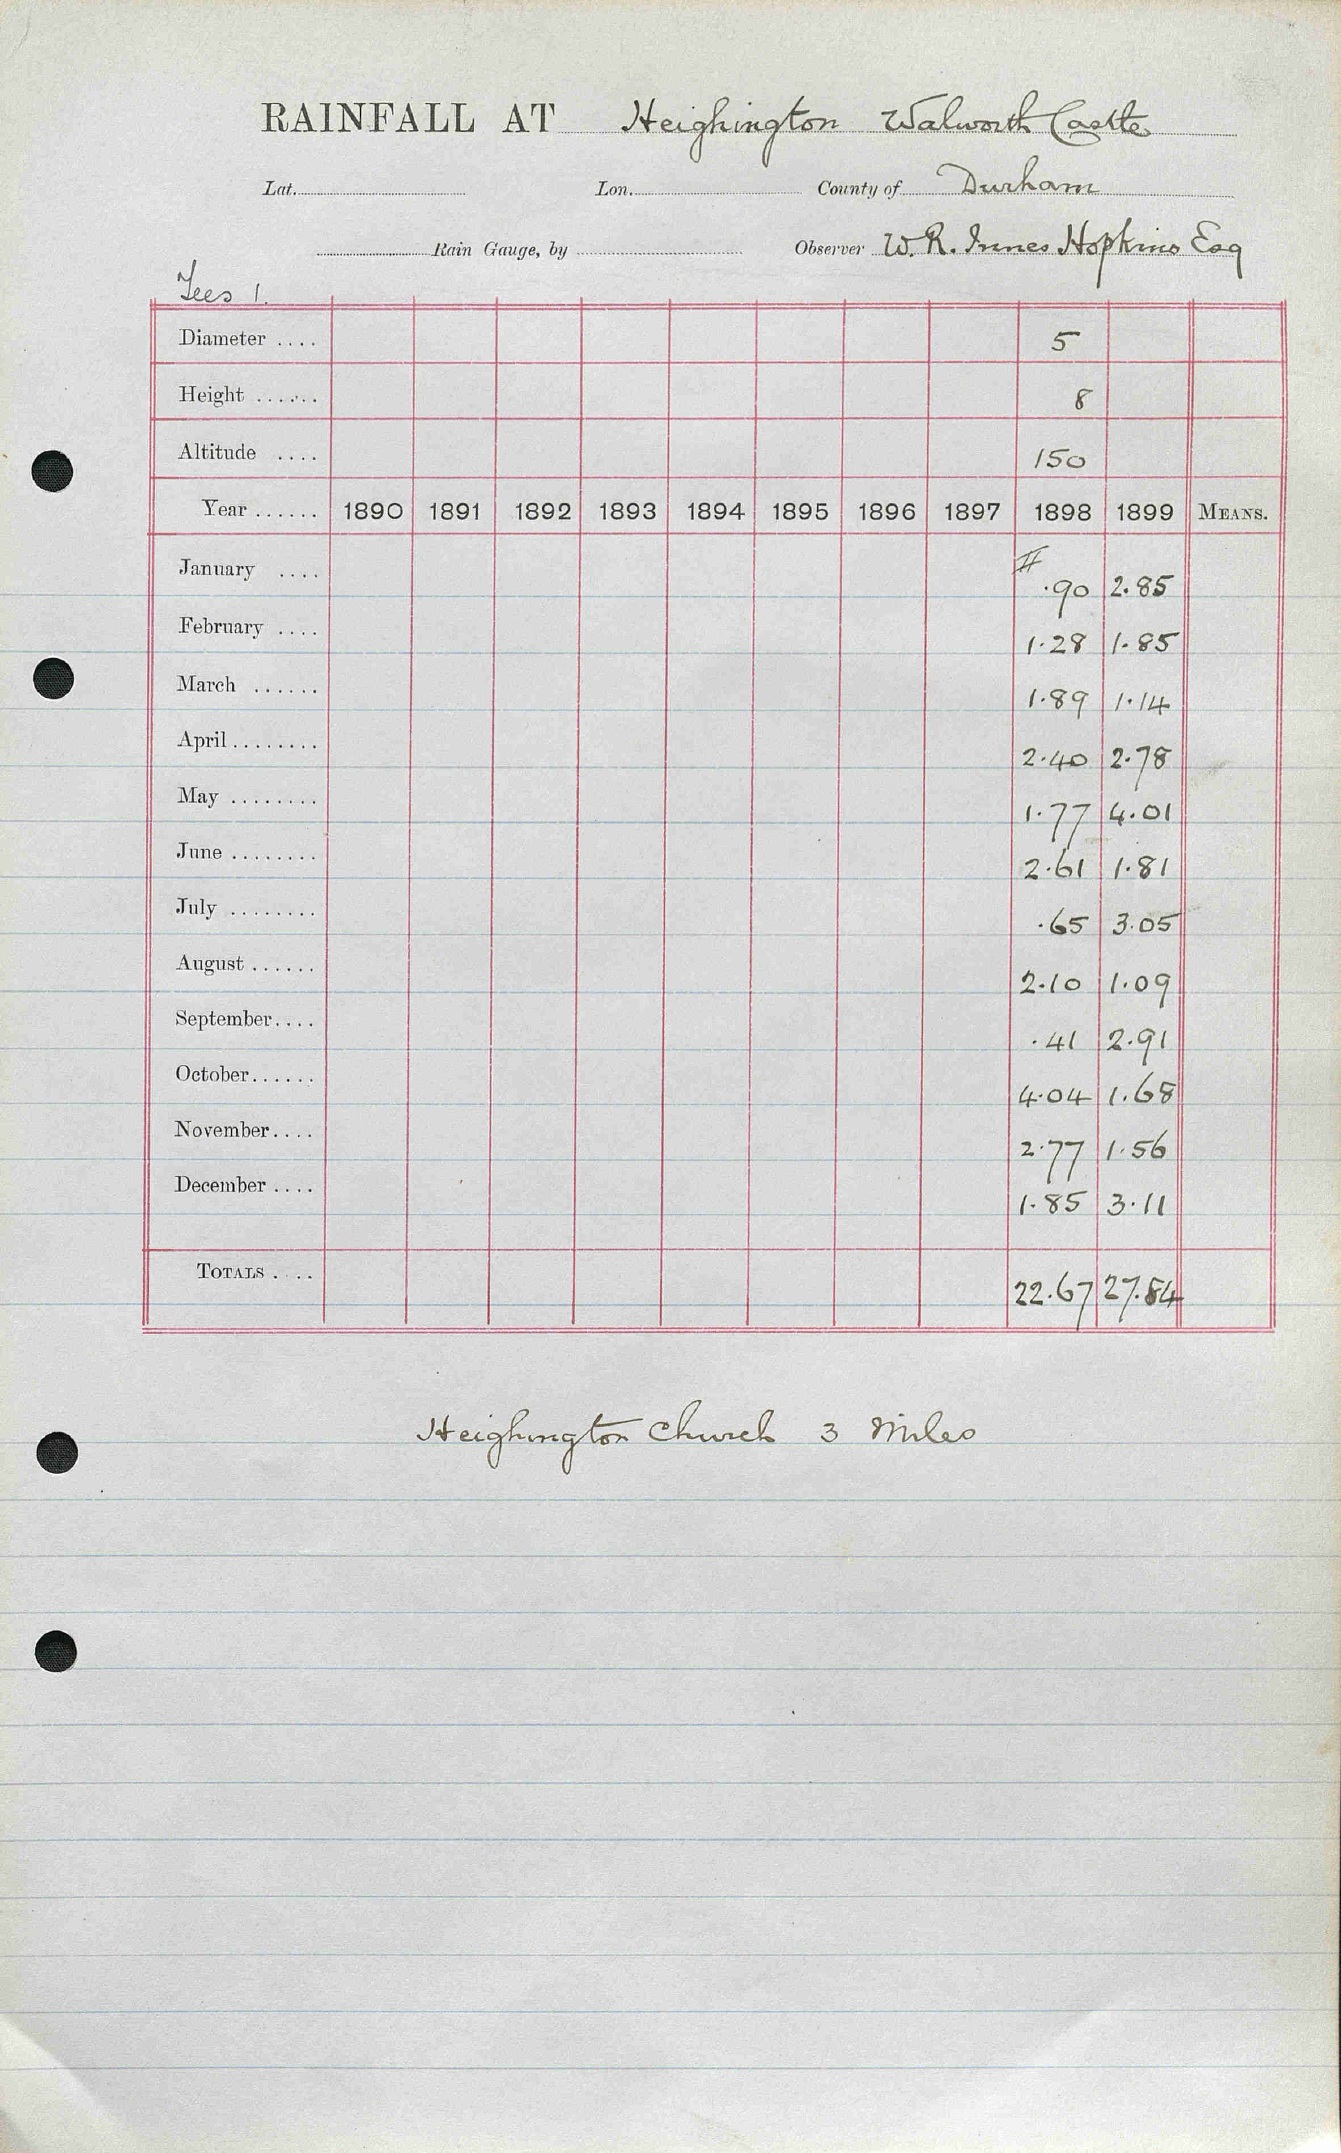 RAINFALL AT Heighington Walworth Castle
Lat. Lon. County of Durham
Rain Gauge, by Observer W. R. Innes Hopkins Esq
Tees 1.
Diameter .... 5
Height ...... 8
Altitude .... 150
Year ...... 1890 1891 1892 1893 1894 1895 1896 1897 1898 1899 MEANS.
January .... # .90 2.85
February .... 1.28 1.85
March ...... 1.89 1.14
April ........ 2.40 2.78
May ........ 1.77 4.01
June ........ 2.61 1.81
July ........ .65 3.05
August ...... 2.10 1.09
September.... .41 2.91
October...... 4.04 1.68
November.... 2.77 1.56
December .... 1.85 3.11
TOTALS .... 22.67 27.84
Heighington Church 3 Miles